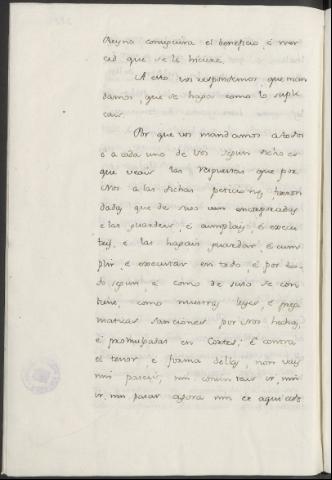 Reyno conseguira el beneficio, é mer
ced que se le hiciere.
A esto vos respondemos, que man
damos, que se haga como lo supli
cais.
Por que vos mandamos a todos
é a cada uno de vos segun dicho es
que veais las respuestas que por
Nos a las dichas peticiones, fueron
dadas, que de suso van encorporadas
e las guardeis, é cumplais, é execu
teis, é las hagais guardar, é cum
plir, é executar en todo, é por to
do segun, é como de suso se con
tiene, como nuestras leyes, é prag
maticas sanciones por Nos hechas,
é promulgadas en Cortes; É contra
el tenor, e forma dellas, non vais
nin paseis, nin consintais ir, nin
ir, nin pasar agora nin de aqui ade